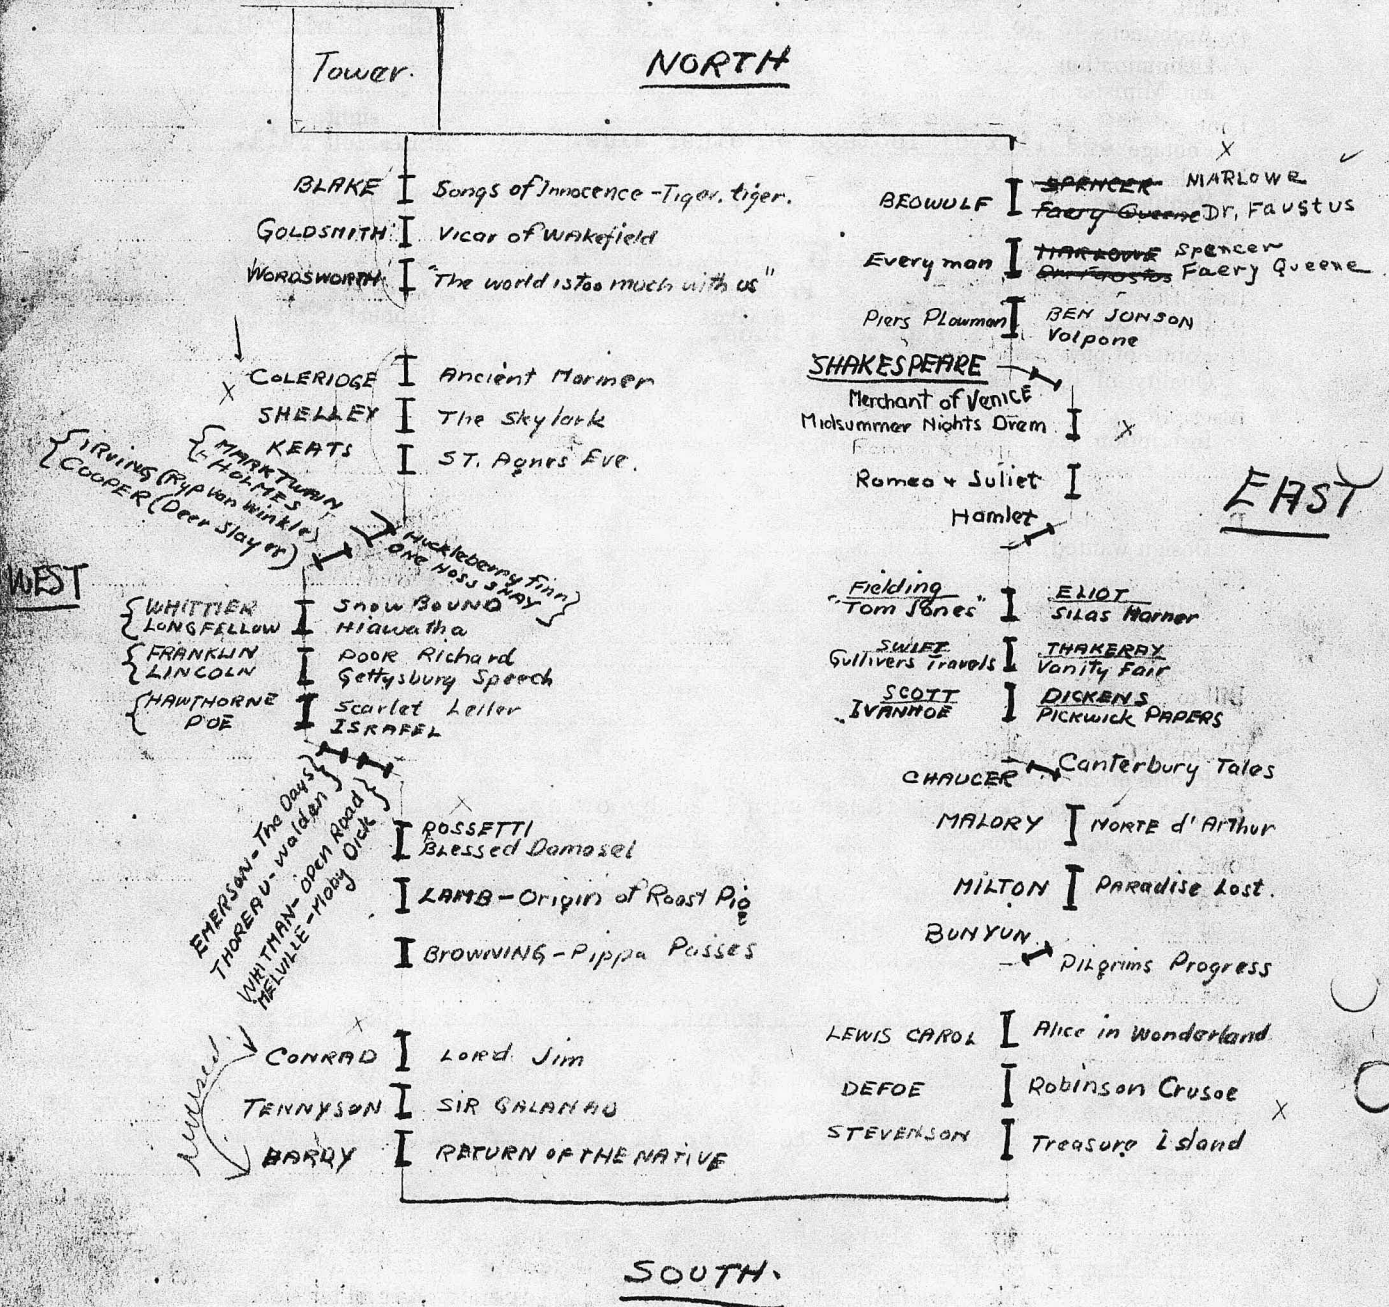 Tower.
NORTH
BLAKE Songs of Innocence - Tiger, tiger.
GOLDSMITH Vicar of Wakefield
WORDSWORTH "The world is too much with us"
COLERIDGE Ancient Mariner
SHELLEY The Skylark
KEATS ST. Agnes Eve.
MARK TWAIN
HOLMES
IRVING (Ryp Van Winkle)
COOPER (Deer Slayer)
Huckleberry Finn
ONE HOSS SHAY
WEST
WHITTIER Snow BOUND
LONGFELLOW Hiawatha
FRANKLIN POOR Richard
LINCOLN Gettysburg Speech
HAWTHORNE Scarlet Letter
POE ISRAFEL
EMERSON - The Days
THOREAU - Walden
WHITMAN - Open Road
MELVILLE - Moby Dick
ROSSETTI
Blessed Damosel
LAMB - Origin of Roast Pig
BROWNING - Pippa Passes
reversed
CONRAD Lord Jim
TENNYSON SIR GALAHAD
HARDY RETURN OF THE NATIVE
BEOWULF SPENCER MARLOWE
Faery Queene Dr. Faustus
Everyman MARLOWE Spencer
Dr. Faustus Faery Queene
Piers Plowman BEN JONSON
Volpone
SHAKESPEARE
Merchant of VENICE
Midsummer Nights Drem
Romeo + Juliet
Hamlet
EAST
Fielding ELIOT
"Tom Jones" SILAS Marner
SWIFT THAKERAY
Gullivers Travels Vanity Fair
SCOTT DICKENS
IVANHOE PICKWICK PAPERS
CHAUCER Canterbury Tales
MALORY MORTE d'Arthur
MILTON PARadise Lost.
BUNYUN
PILgrims Progress
LEWIS CAROL Alice in Wonderland
DEFOE Robinson Crusoe
STEVENSON Treasure Island
SOUTH.